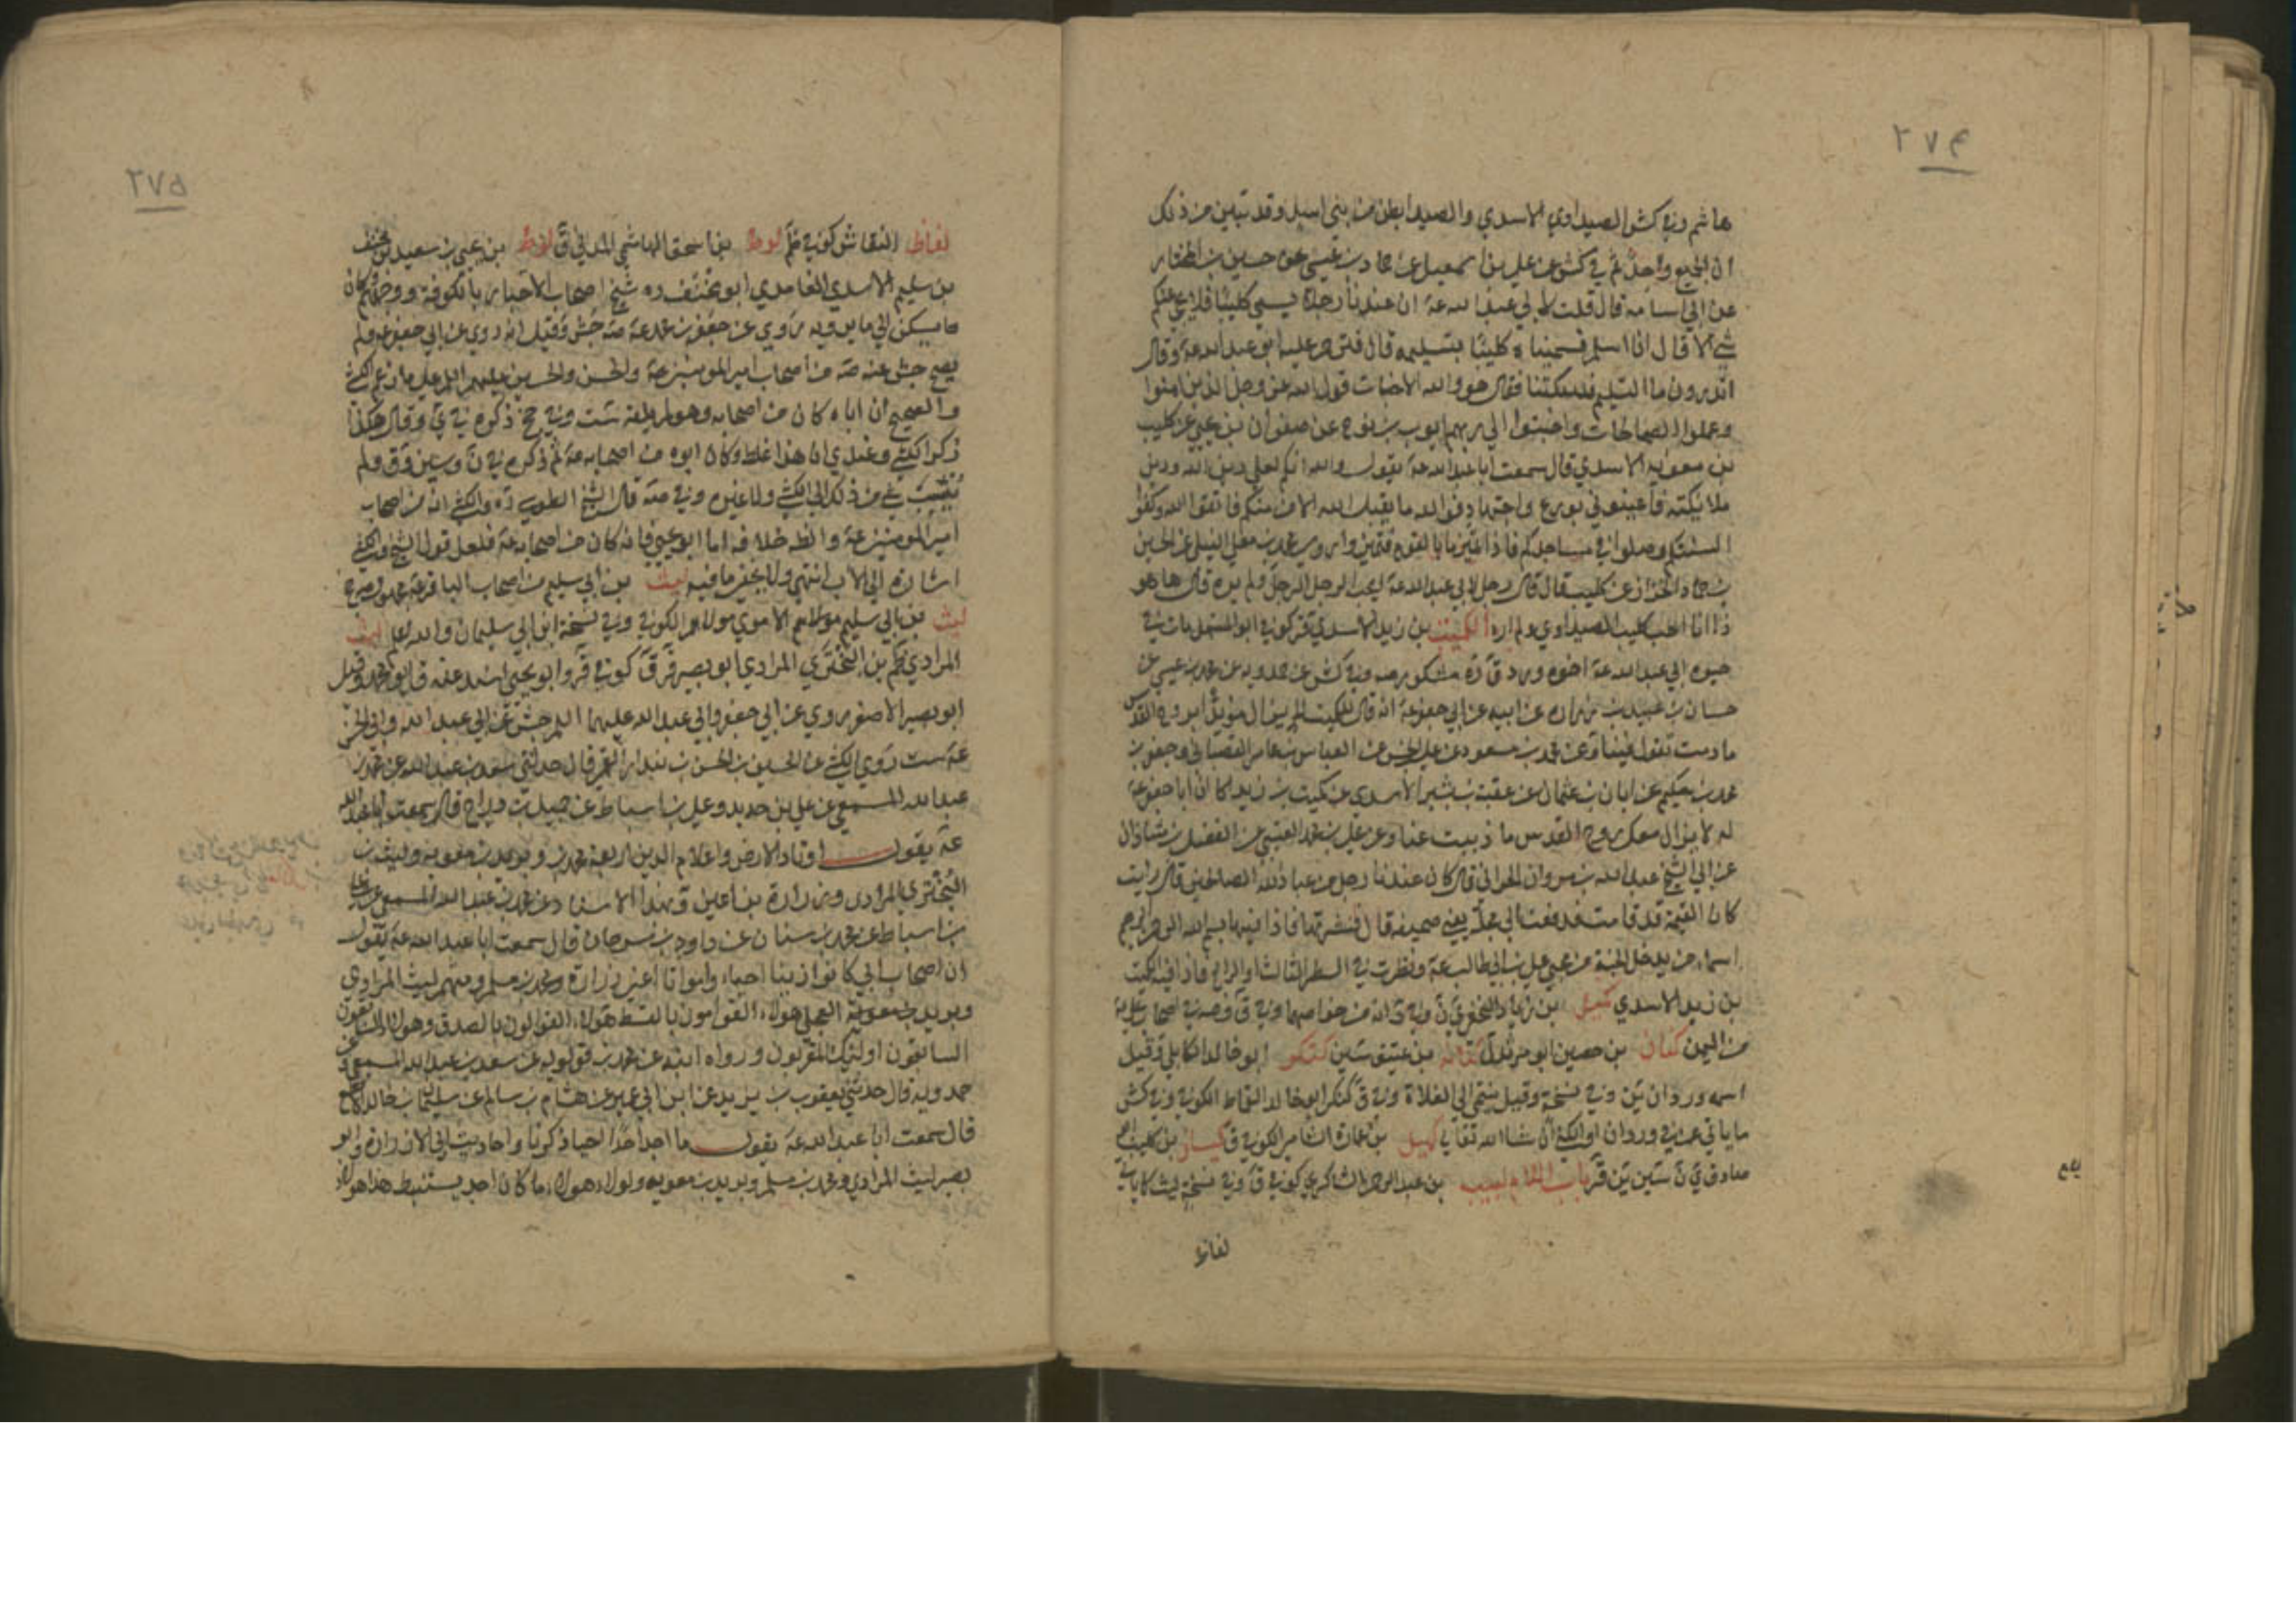 ٢٧۴
هاشم وفي كش الصيداوي الاسدي والصيدا بطن من بني اسد وقد تبين من ذلك
ان الجميع واحد ثم في كش عن علي بن اسمعيل عن حماد بن عيسى عن حسين بن المختار
عن ابي اسامة قال قلت لابي عبد الله عة ان عندنا رجلا يسمى كليبا فلا يجئ عنكم
شئ الا قال انا اسلم فسميناه كليبا بتسليمه قال فترحم عليه ابو عبد الله عة وقال
اتدرون ما التسليم فسكتنا فقال هو والله الاخبات قول الله عز وجل الذين امنوا
وعملوا الصالحات واخبتوا الى ربهم ايوب بن نوح عن صفوان بن يحيى عن كليب
بن معوية الاسدي قال سمعت ابا عبد الله عة يقول والله انكم لعلى دين الله ودين
ملائكته فاعينوني بورع واجتهاد فوالله ما يقبل الله الا منكم فاتقوا الله وكفوا
السنتكم وصلوا في مساجدكم فاذا
بن حماد الخزاز عن كليب قال قال رجل لابي عبد الله عة ايحب الرجل الرجل ولم يره قال ها هو
ذا انا احب كليب الصيداوي ولم اره الكميت بن زيد الاسدي قر كوفي ابو المستهل مات في
حيوة ابي عبد الله عة اخوه ورد ق وفي كش عن حمدويه عن محمد بن عيسى عن
حسان بن عبيد بن زرارة عن ابيه عن ابي جعفر عة انه قال للكميت لا يزال مؤيدا بروح القدس
ما دمت تقول فينا وعن محمد بن مسعود عن علي بن الحسن عن العباس بن عامر القصباني وجعفر بن
محمد بن حكيم عن ابان بن عثمان عن عقبة بن بشير الاسدي عن كميت بن زيد ان ابا جعفر عة
له لا يزال معك روح القدس ما ذببت عنا وعن علي بن محمد القتيبي عن الفضل بن شاذان
عن ابي الشيخ عبد الله بن مروان الحراني قال كان عندنا رجل من عباد الله الصالحين قال رايت
كان القيمة قد قامت فدفعت الي مجلة يعني صحيفة قال فنشرتها فاذا فيها بسم الله الرحمن الرحيم
اسماء من يدخل الجنة من محبي علي بن ابي طالب عة ونظرت في السطر الثالث او الرابع فاذا فيه كميت
بن زيد الاسدي كميل بن زياد النخعي ي ن
من اليمن كنان بن حصين ابو مرثد ل بن عتيق سين كنكر ابو خالد الكابلي وقيل
اسمه وردان ين وفي نسخة وقيل ينتمي الى الغلاة وفي ق كنكر ابو خالد القماط الكوفي وفي كش
ما ياتي عن في وردان او الكنى ان شاء الله تعالى كهيل بن عمارة الشامي الكوفي ق كيسان بن كليب
صادق ي ن سين ين قر باب اللام لبيب بن عبد الرحمن الشاكري كوفي ق وفي نسخة
لفافة
٢٧۵
لفافة النقاش كوفي ظم لوط بن اسحق الهاشمي المدني ق لوط بن يحيى بن سعيد بن مخنف
بن سليم الاسدي الغامدي ابو مخنف ره شيخ اصحاب الاخبار بالكوفة ووجههم كان
ما يسكن الى ما يرويه روى عن جعفر بن محمد عة صه جش وقيل انه روى عن ابي جعفر عة ولم
يصح جش عنه صه من اصحاب امير المؤمنين عة والحسن والحسين عليهم السلم على ما زعم الكشي
والصحيح ان اباه كان من اصحابه وهو لم يلقه ست وفي جخ ذكره في ي وقال هكذا
ذكر الكشي وعندي ان هذا غلط وكان ابوه من اصحابه عة ثم ذكره في ن وسين وق ولم
من ذلك الى الكشي ولا غيره وفي صه قال الشيخ الطوسي ره والكشي انه من اصحاب
امير المؤمنين عة والظ خلافه اما ابوه يحيى فانه كان من اصحابه عة فلعل قول الشيخ والكشي
اشارة الى الاب انتهى ولا يخفى ما فيه ليث بن ابي سليم من اصحاب الباقر عة
ليث بن ابي سليم مولاهم الاموي مولاهم الكوفي وفي نسخة ابن ابي سليمان والله اعلم ليث
المرادي ظم بن البختري المرادي ابو بصير قر ق كوفي قر وابو يحيى اسند عنه ق ابو محمد وقيل
ابو بصير الاصغر روى عن ابي جعفر وابي عبد الله عليهما السلم جش عن ابي عبد الله وابي الحسن
عة ست روى الكشي عن الحسين بن الحسن بن بندار القمي قال حدثني سعد بن عبد الله عن محمد بن
عبد الله المسمعي عن علي بن حديد وعلي بن اسباط عن جميل بن دراج قال سمعت ابا عبد الله
عة يقول اوتاد الارض واعلام الدين اربعة محمد بن وبريد بن معوية وليث بن
البختري المرادي وزرارة بن اعين وبهذا الاسناد عن محمد بن عبد الله المسمعي عن علي
بن اسباط عن محمد بن سنان عن داود بن سرحان قال سمعت ابا عبد الله عة يقول
ان اصحاب ابي كانوا زينا احياء وامواتا اعني زرارة ومحمد بن مسلم ومنهم ليث المرادي
وبريد بن معوية العجلي هؤلاء القوامون بالقسط هؤلاء القوالون بالصدق وهؤلاء السابقون
السابقون اولئك المقربون ورواه ايضا عن محمد بن قولويه عن سعد بن عبد الله المسمعي و
حمدويه قال حدثني يعقوب بن يزيد عن ابن ابي عمير عن هشام بن سالم عن سليمان بن خالد الاقطع
قال سمعت ابا عبد الله عة يقول ما اجد احدا احيا ذكرنا واحاديث ابي الا زرارة وابو
بصير ليث المرادي ومحمد بن مسلم وبريد بن معوية ولولا هؤلاء ما كان احد يستنبط هذا هؤلاء